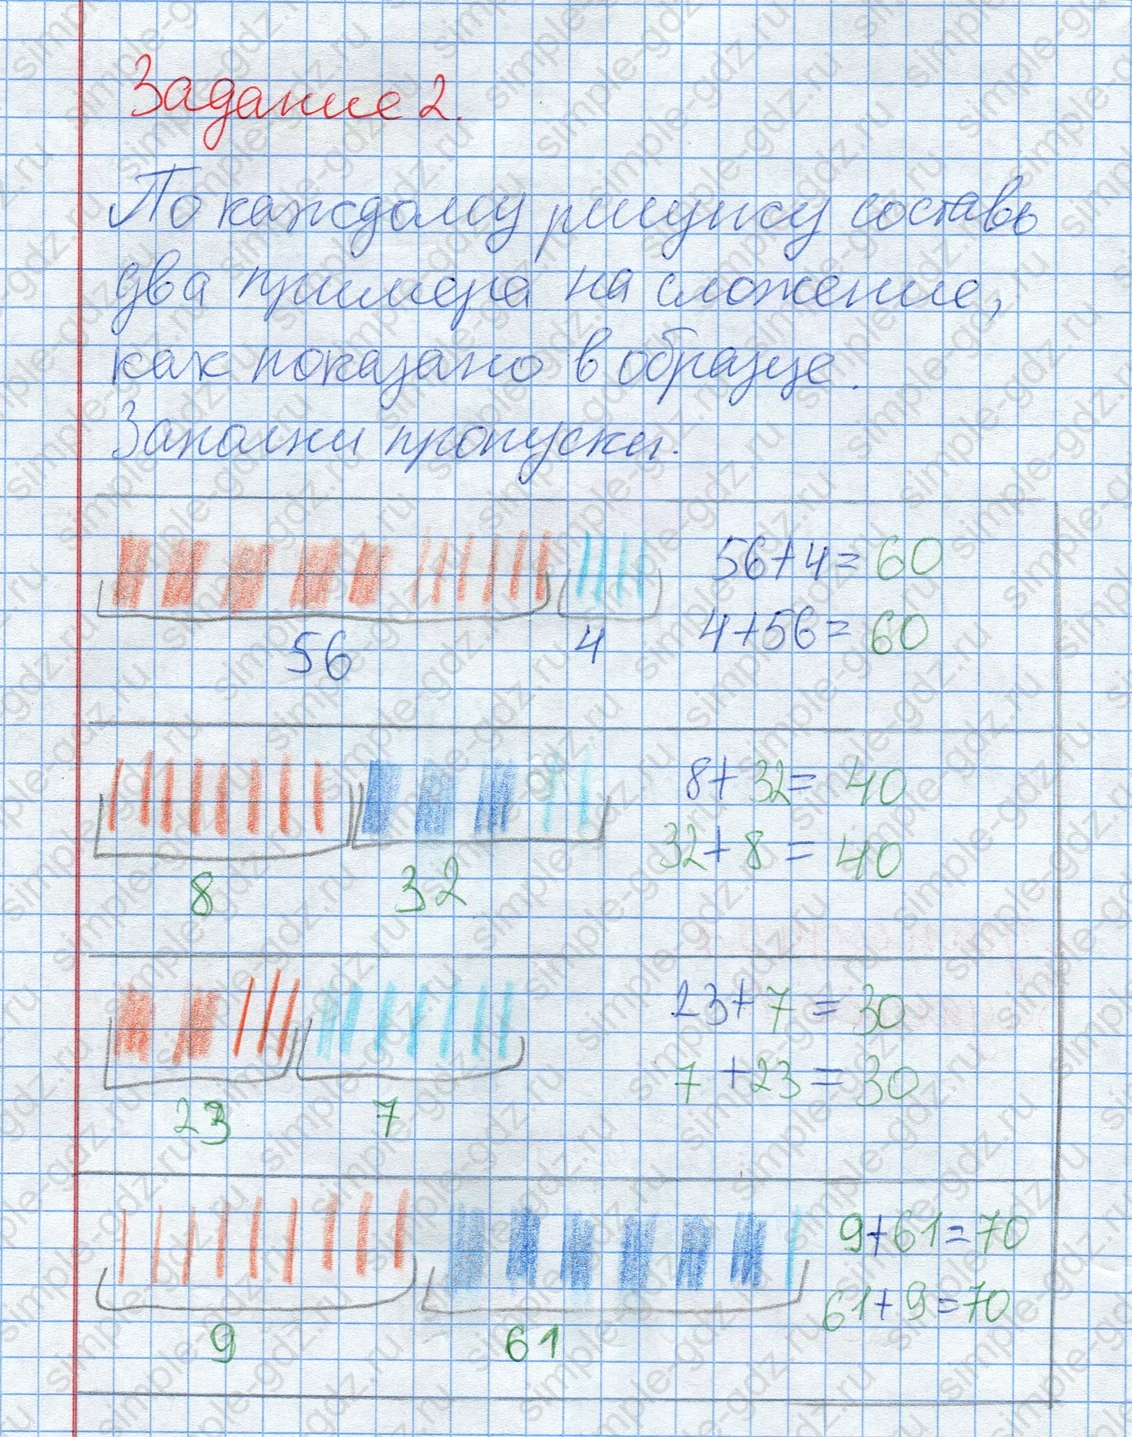 Задание 2.
По каждому рисунку составь
два примера на сложение,
как показано в образце.
Заполни пропуски.
56+4=60
4+56=60
56 4
8+32=40
32+8=40
8 32
23+7=30
7+23=30
23 7
9+61=70
61+9=70
9 61
simple-gdz.ru